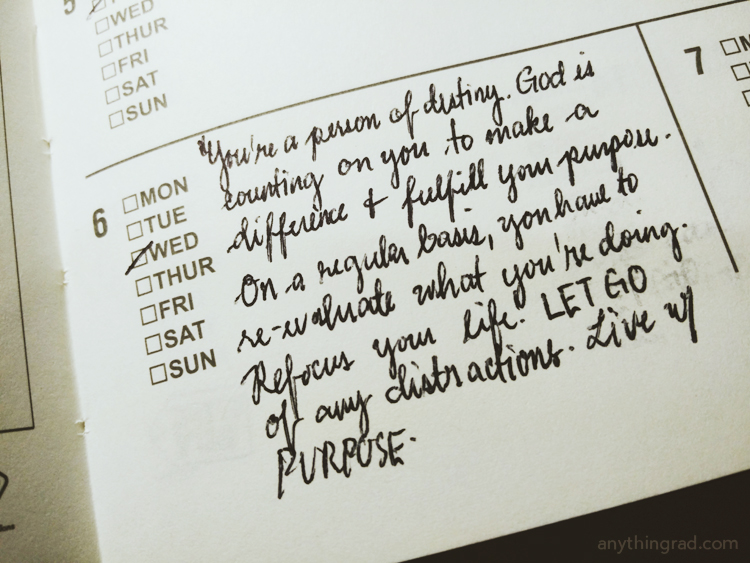 5
WED
THUR
FRI
SAT
SUN
6
MON
TUE
WED
THUR
FRI
SAT
SUN
"You're a person of destiny. God is
counting on you to make a
difference & fulfill your purpose.
On a regular basis, you have to
re-evaluate what you're doing.
Refocus your life. LET GO
of any distractions. Live w/
PURPOSE.
7
anythingrad.com